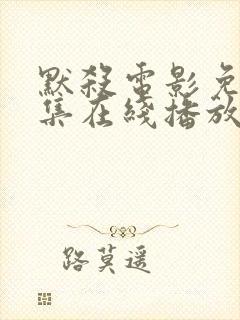 默殺電影免
集在綫播放
路莫遥